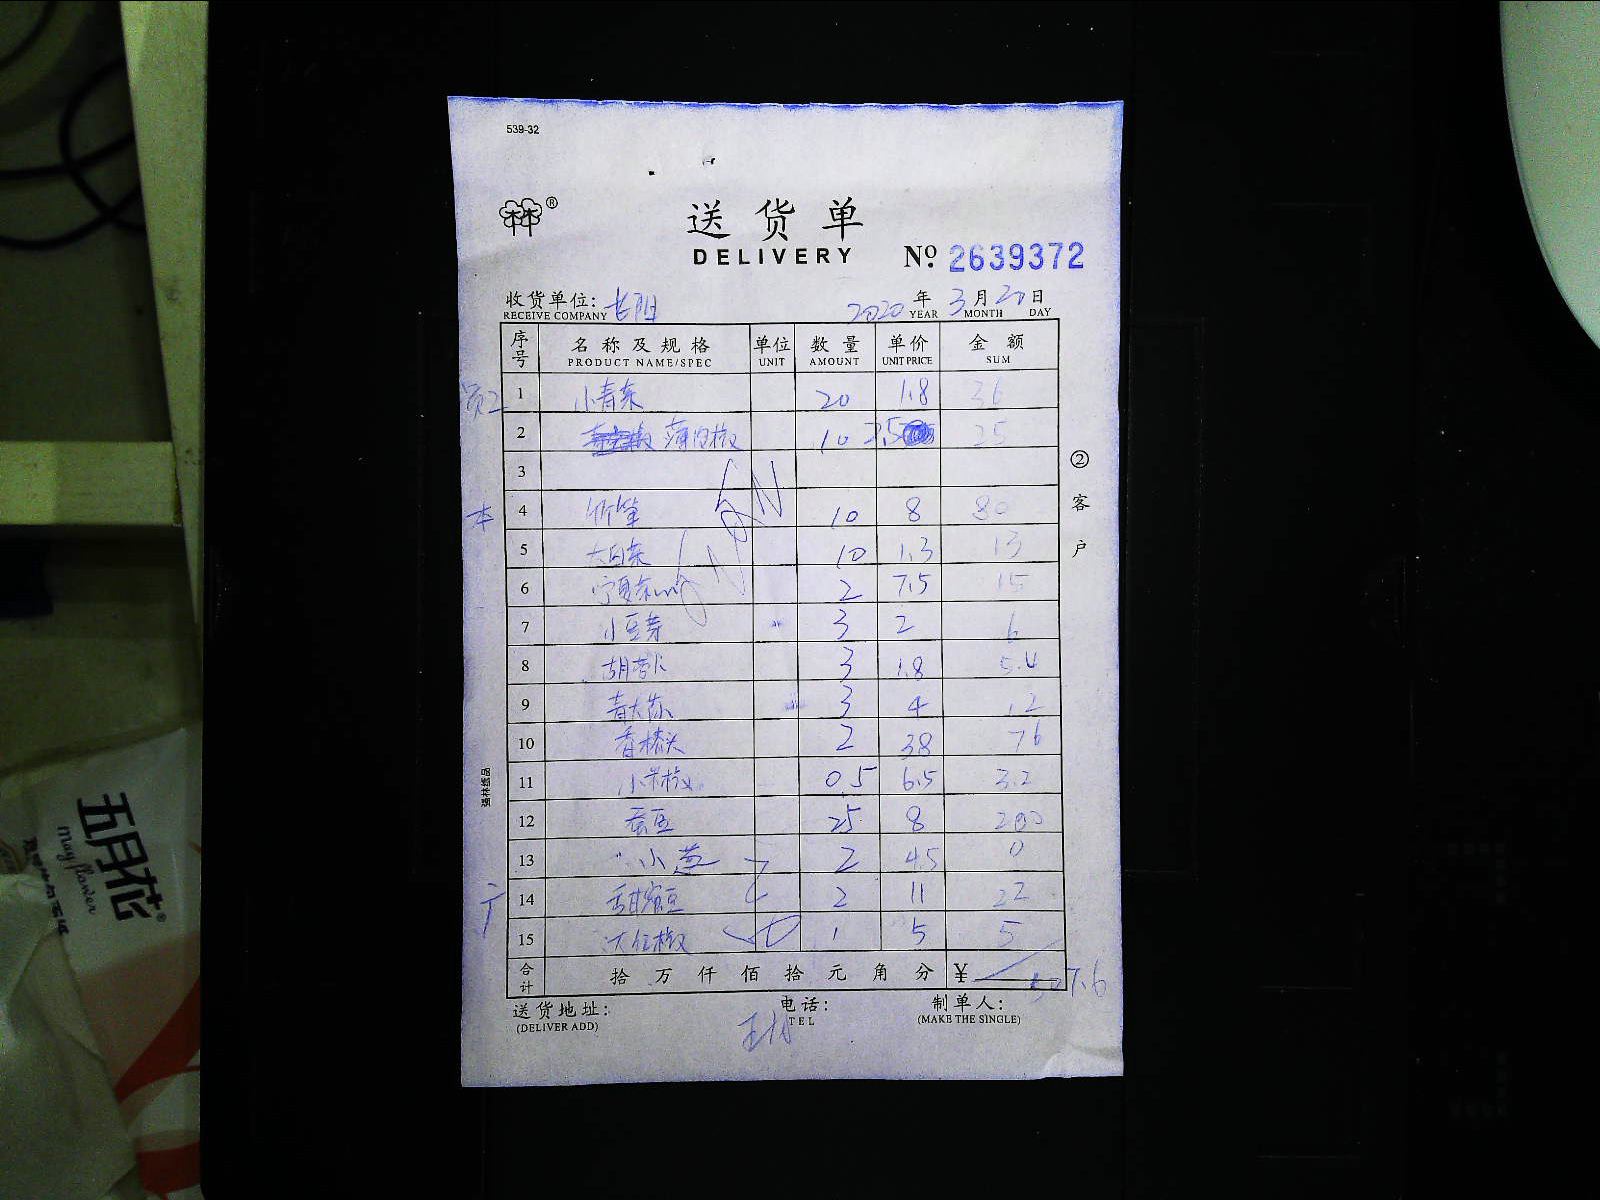 539-32
林®
送货单
DELIVERY
№ 2639372
收货单位: 长阳 2020 年 3 月 20 日
RECEIVE COMPANY YEAR MONTH DAY
序号 名称及规格 单位 数量 单价 金额
PRODUCT NAME/SPEC UNIT AMOUNT UNIT PRICE SUM
员工 1 小青菜 20 1.8 36
2 薄皮椒 10 2.5 25
3
本 4 竹笋 10 8 80
5 大白菜 10 1.3 13
6 宁夏菜心 2 7.5 15
7 小豆芽 3 2 6
8 胡萝卜 3 1.8 5.4
9 青大蒜 3 4 12
10 香椿头 2 38 76
11 小米椒 0.5 6.5 3.2
12 蚕豆 25 8 200
13 小葱 2 4.5
14 甜蜜豆 2 11 22
15 大红椒 1 5 5
合计 拾 万 仟 佰 拾 元 角 分 ¥ 507.6
送货地址: 电话: 制单人:
(DELIVER ADD) TEL (MAKE THE SINGLE)
②客户
强林纸品
五月花®
May flower